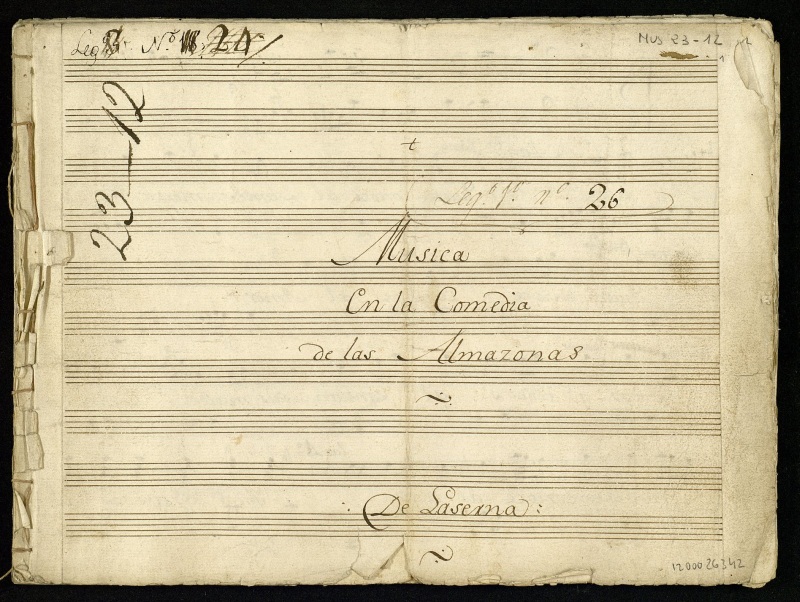 Leg.º 8 Nº 24
MUS 23-12
1
23-12
Leg.º 1º nº. 26
Musica
En la Comedia
de las Almazonas
De Laserna:
1200026342